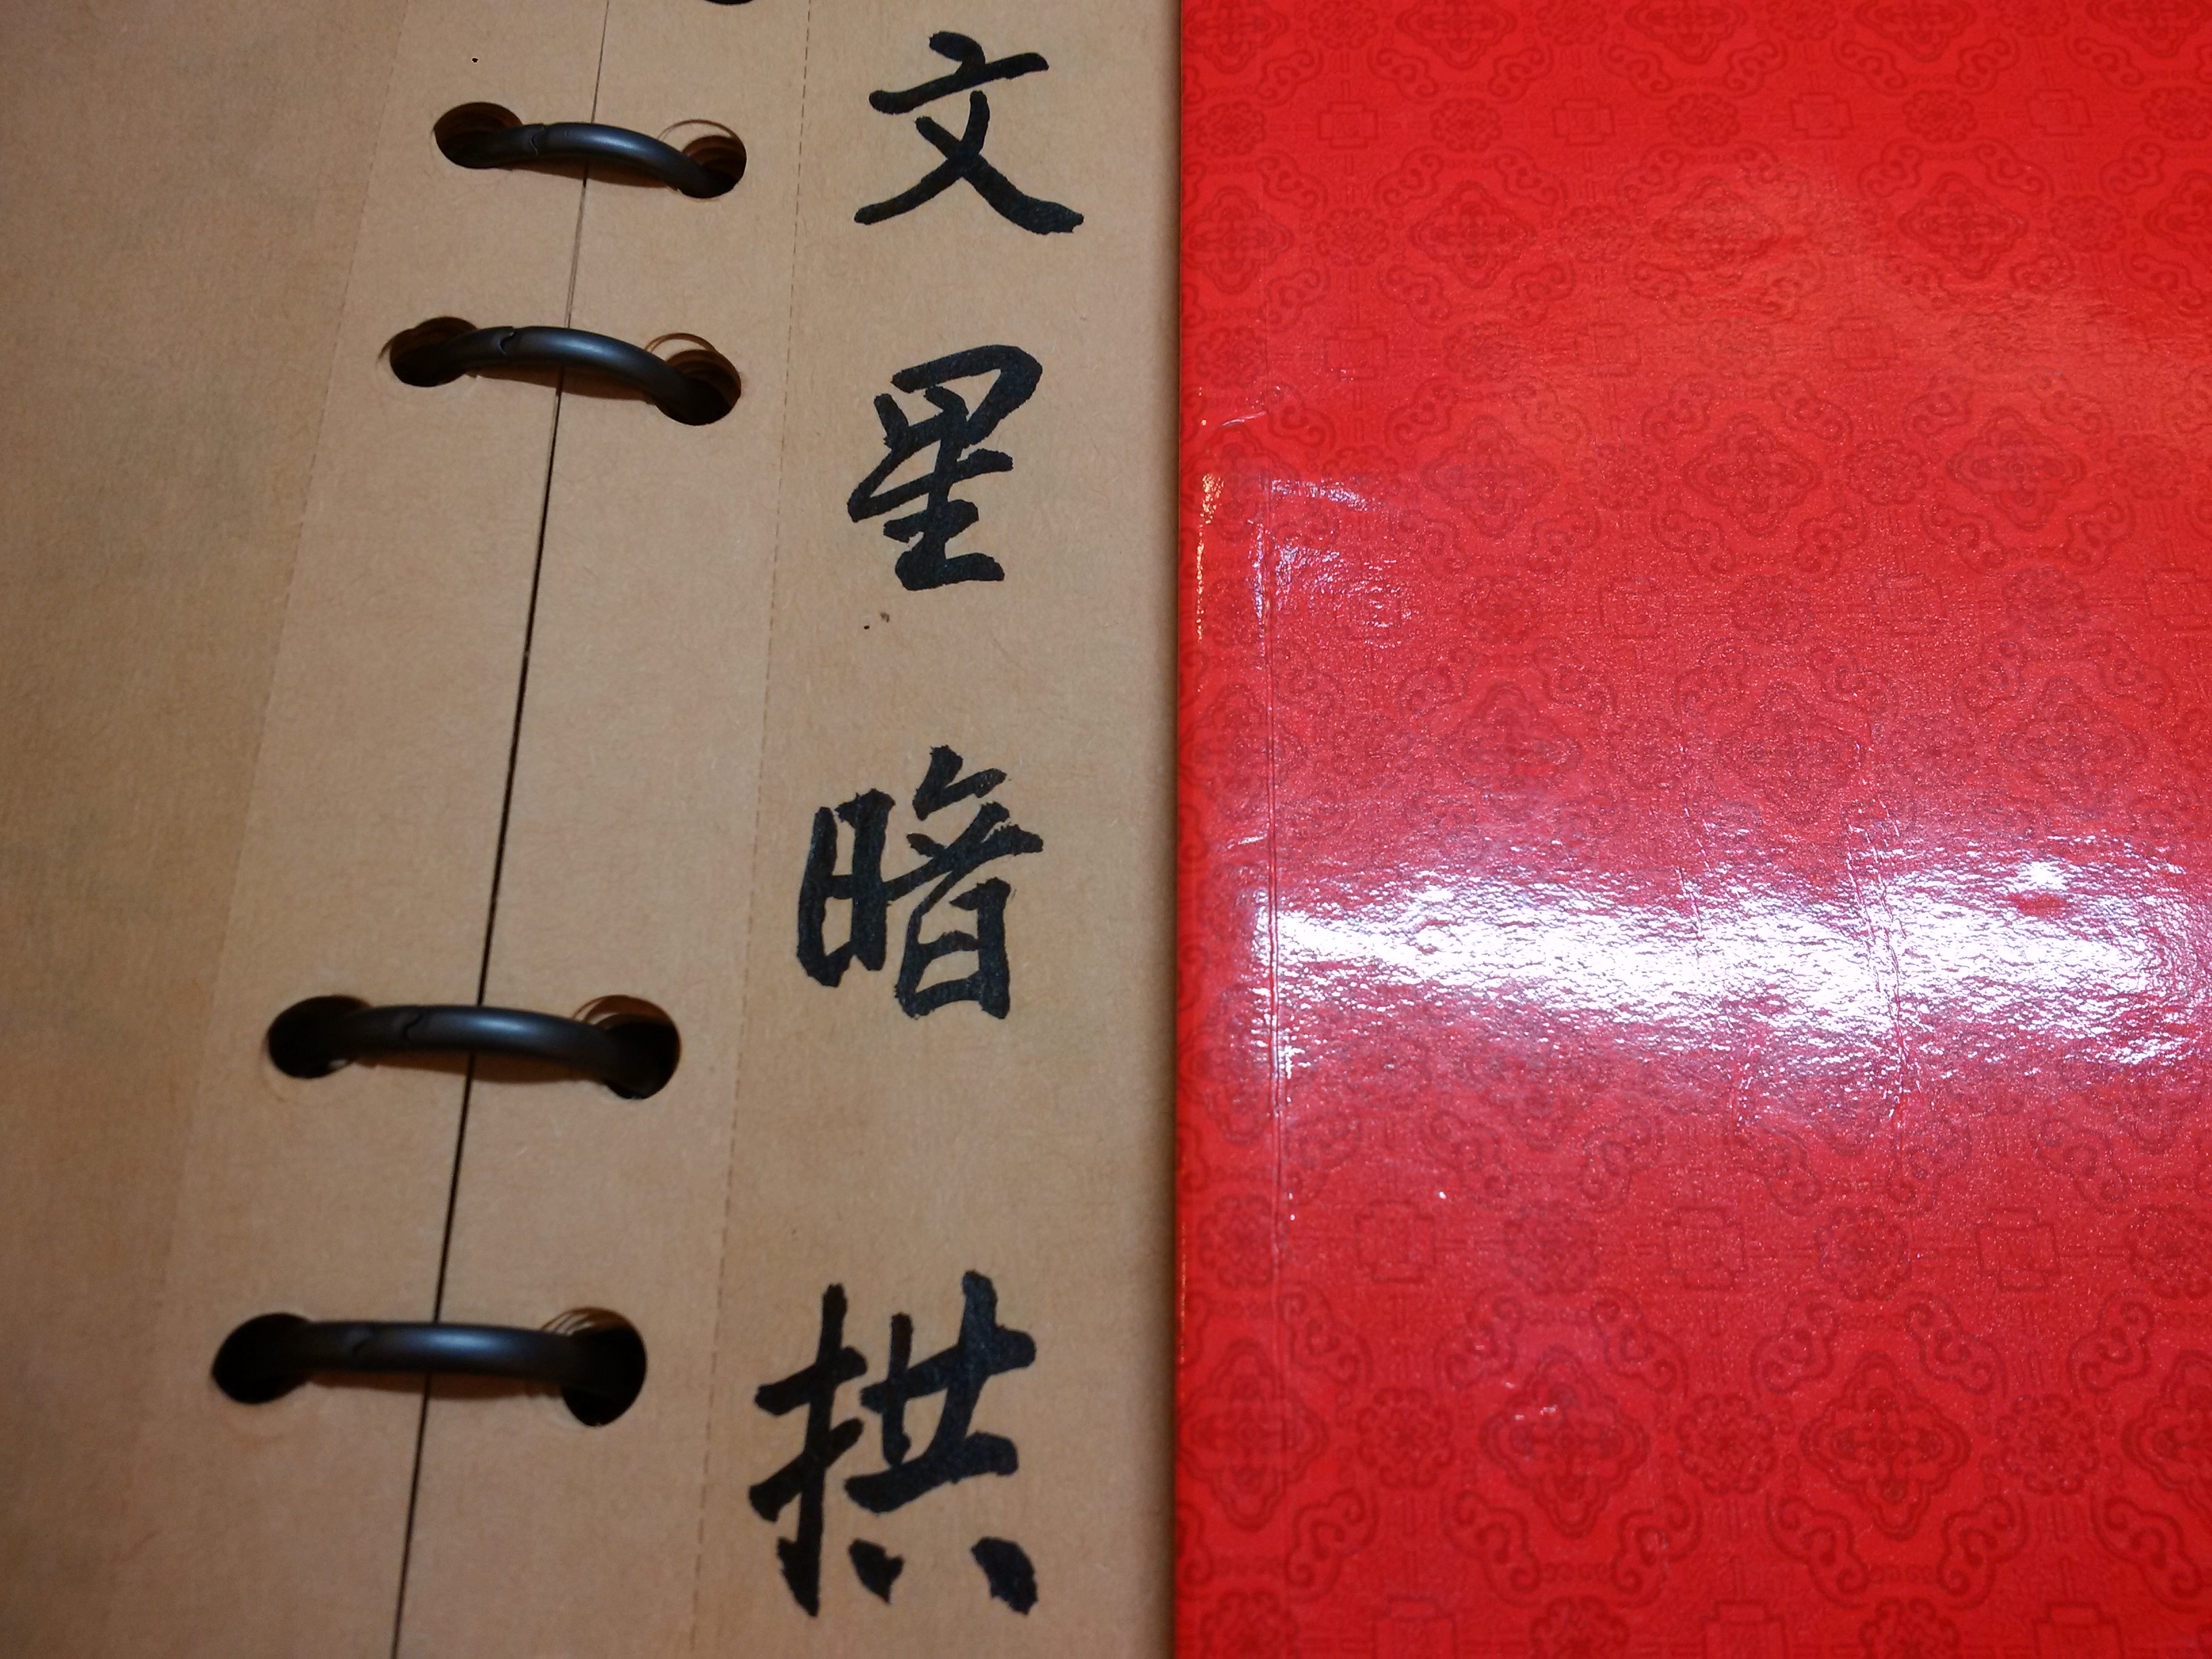 文星暗拱